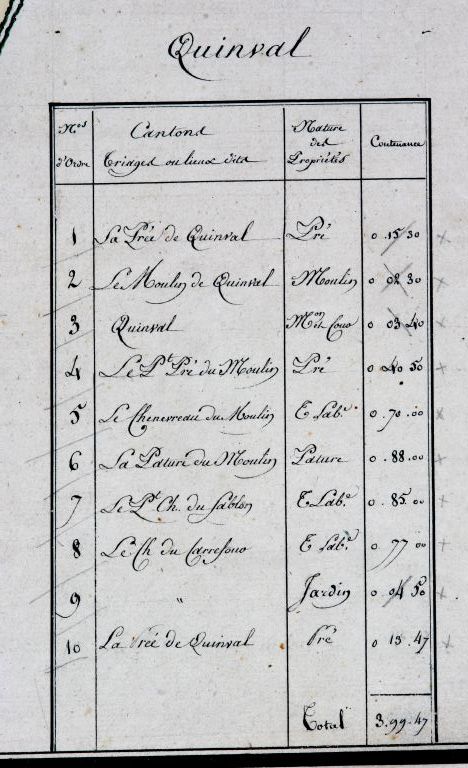 Quinval
Nos Cantons Nature
d'Ordre Triages ou lieux dits des Propriétés Contenance
1 La Prée de Quinval Pré 0 .15 30
2 Le Moulin de Quinval Moulin 0 02 30
3 Quinval Mon et Cour 0 03 40
4 Le Pt Pré du Moulin Pré 0 40 50
5 Le Chenevreau du Moulin T Labe 0 .70 .00
6 La Pature du Moulin Pature 0 .88.00
7 Le Pt Ch. du Sablon T Labe 0 .85 00
8 Le Ch du Carrefour T Labe 0 77 00
9 " Jardin 0 04 50
10 La Prée de Quinval Pré 0 13 .47
Total 3.99.47